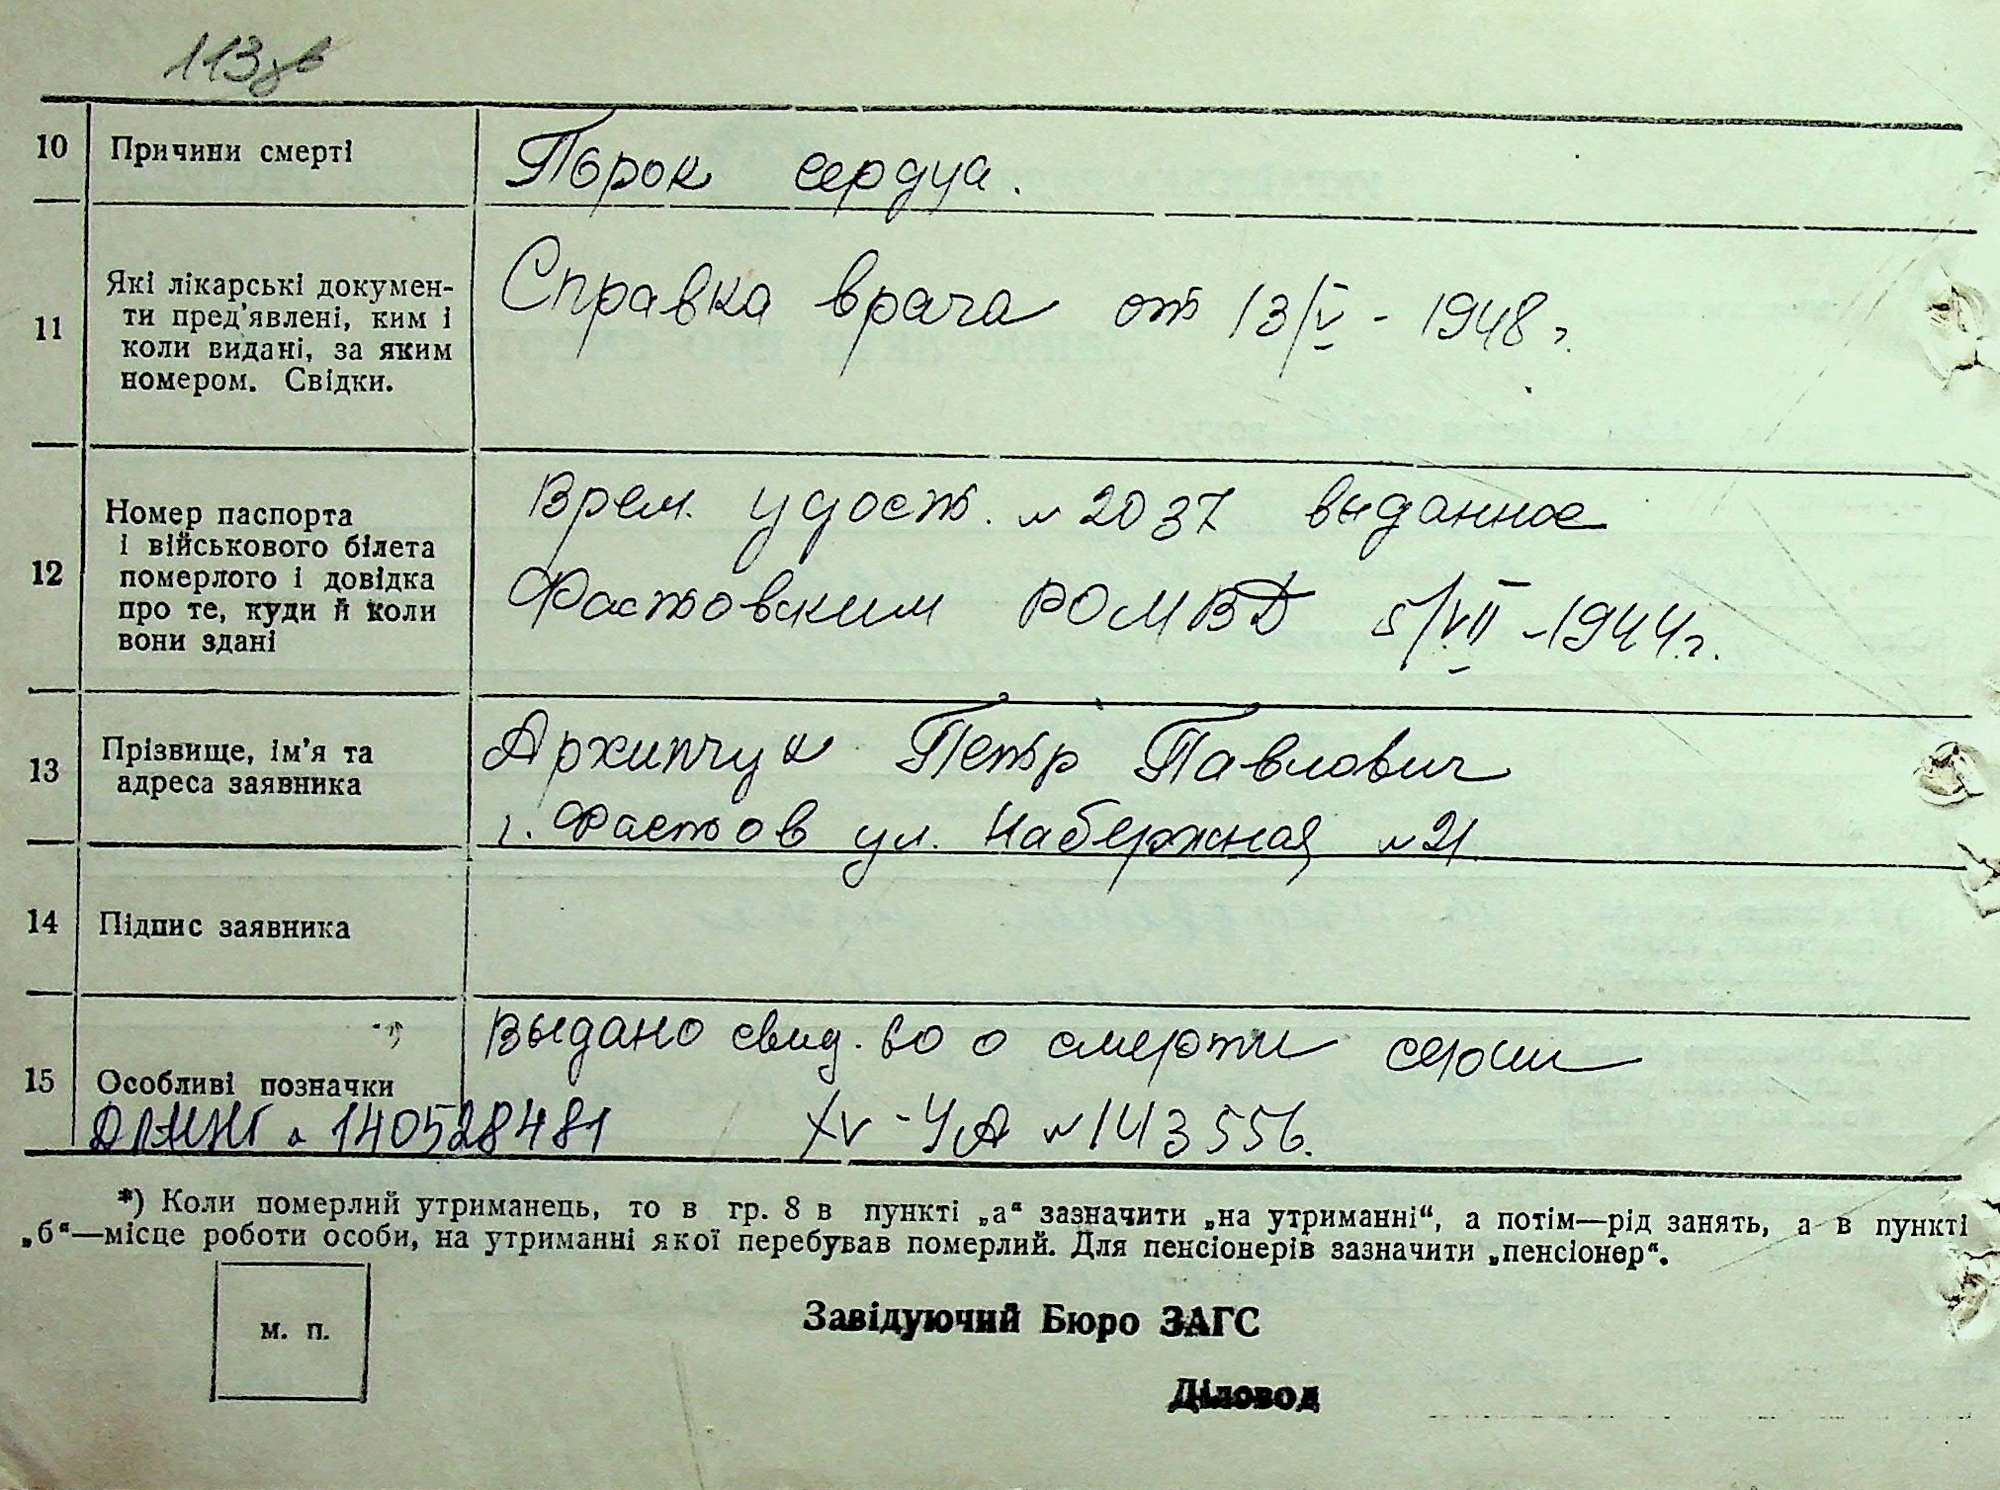 113зв
10 Причини смерті
Порок сердца.
11 Які лікарські докумен-
ти пред’явлені, ким і
коли видані, за яким
номером. Свідки.
Справка врача от 13/V - 1948 г.
12 Номер паспорта
і військового білета
померлого і довідка
про те, куди й коли
вони здані
Врем. удост. №2037 выданное
Фастовским РОМВД 5/VII -1944г.
13 Прізвище, ім’я та
адреса заявника
Архипчук Петр Павлович
г. Фастов ул. Набережная №21
14 Підпис заявника
15 Особливі позначки
Выдано свид.во о смерти серии
XV-УА №143556.
140528481
*) Коли померлий утриманець, то в гр. 8 в пункті „а“ зазначити „на утриманні“, а потім—рід занять, а в пункті
„б“—місце роботи особи, на утриманні якої перебував померлий. Для пенсіонерів зазначити „пенсіонер“.
м. п.
Завідуючий Бюро ЗАГС
Діловод